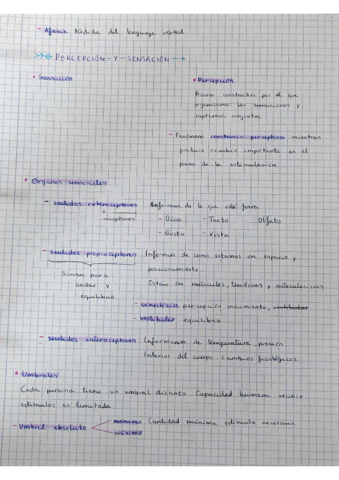 - Afasia: Pérdida del lenguaje verbal
PERCEPCIÓN-Y-SENSACIÓN
• Sensación
• Percepción
Proceso constructivo por el que
organizamos las sensaciones y
captamos conjuntos
- Fenómeno constancia perceptiva mientras
produce cambio importante en el
plano de la estimulación.
• Órganos sensoriales
- sentidos exteroceptores Informan de lo que está fuera
receptores
- Oído - Tacto - Olfato
- Gusto - Vista
- sentidos propioceptores Informan de como estamos en espacio y
posicionamiento
Sirven para
andar y
equilibrio
Están en músculos, tendones y articulaciones
- cinestésico percepción movimiento,
- vestibular equilibrio
- sentidos interoceptores Informan de temperatura, presión
Interior del cuerpo. Cambios fisiológicos
• Umbrales
Cada persona tiene un umbral distinto. Capacidad humana recibir
estímulos es limitada
- Umbral absoluto
mínimo Cantidad mínima estímulo necesario
máximo